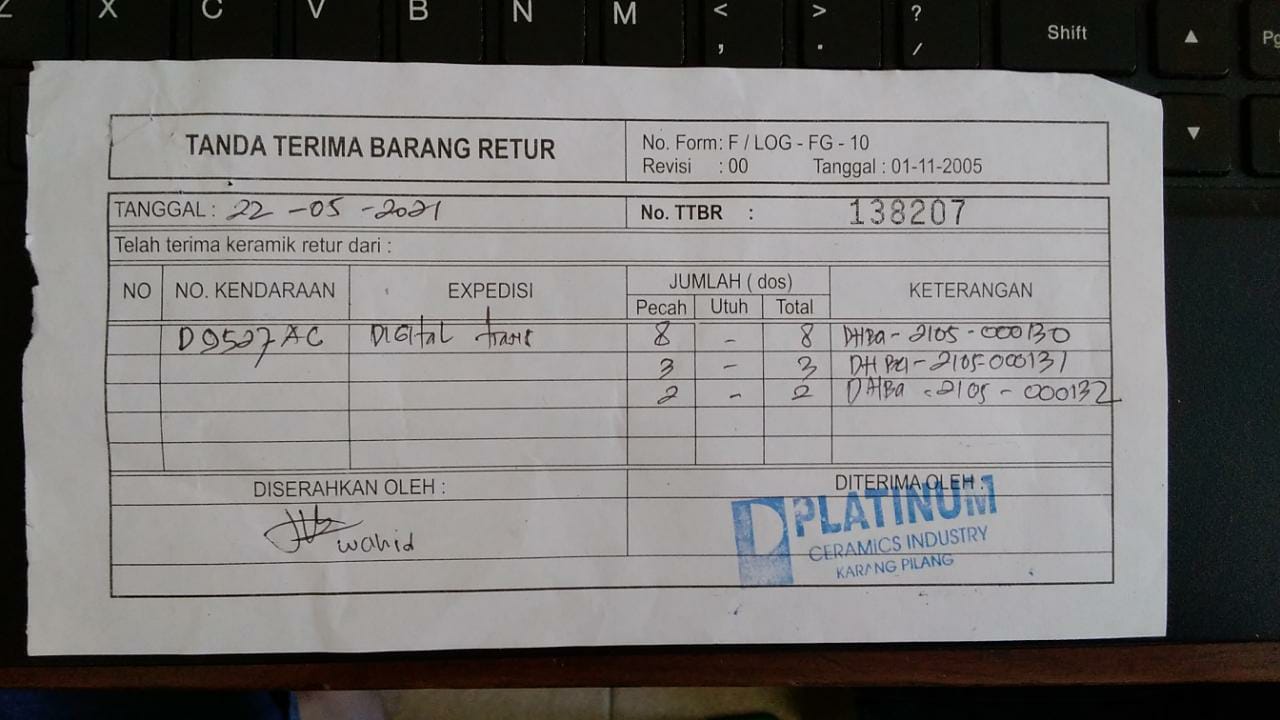 Z X C V B N M < , > . ? / Shift ▲ Pg
▼
TANDA TERIMA BARANG RETUR
No. Form: F / LOG - FG - 10
Revisi : 00 Tanggal : 01-11-2005
TANGGAL : 22 -05 -2021
No. TTBR : 138207
Telah terima keramik retur dari :
NO NO. KENDARAAN EXPEDISI JUMLAH ( dos) KETERANGAN
Pecah Utuh Total
D9527AC DIGItal trans 8 - 8 DHBa-2105-000130
3 - 3 DHBa-2105-000131
2 - 2 DHBa-2105-000132
DISERAHKAN OLEH : DITERIMA OLEH :
wahid
PLATINUM
CERAMICS INDUSTRY
KARANG PILANG